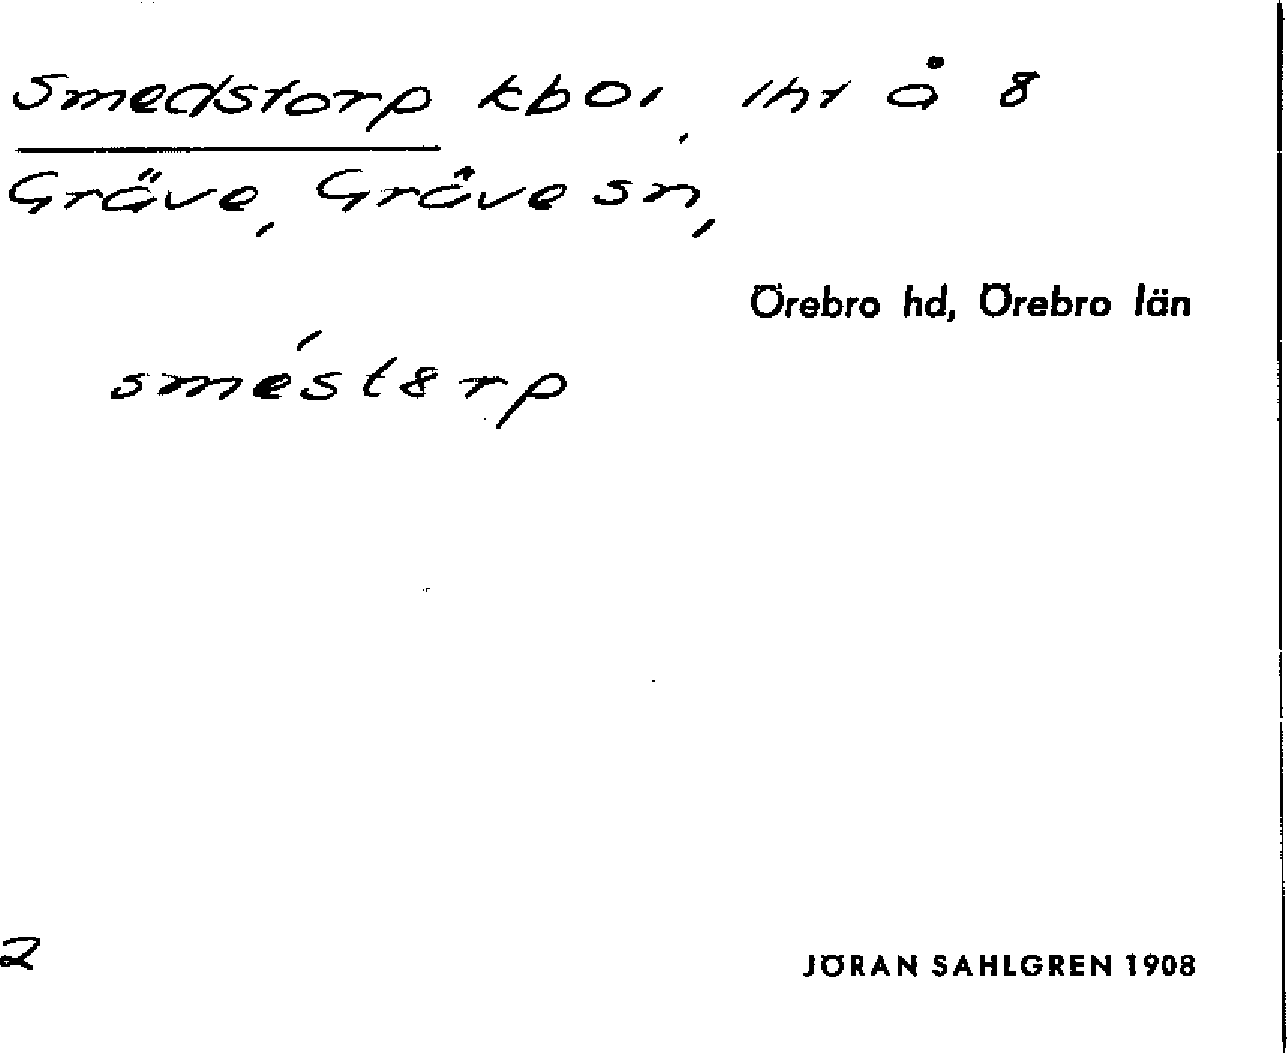 Smedstorp kboi, lht å 8
Gräve, Gräve sn,
Örebro hd, Örebro län
smést8rp
2
JÖRAN SAHLGREN 1908